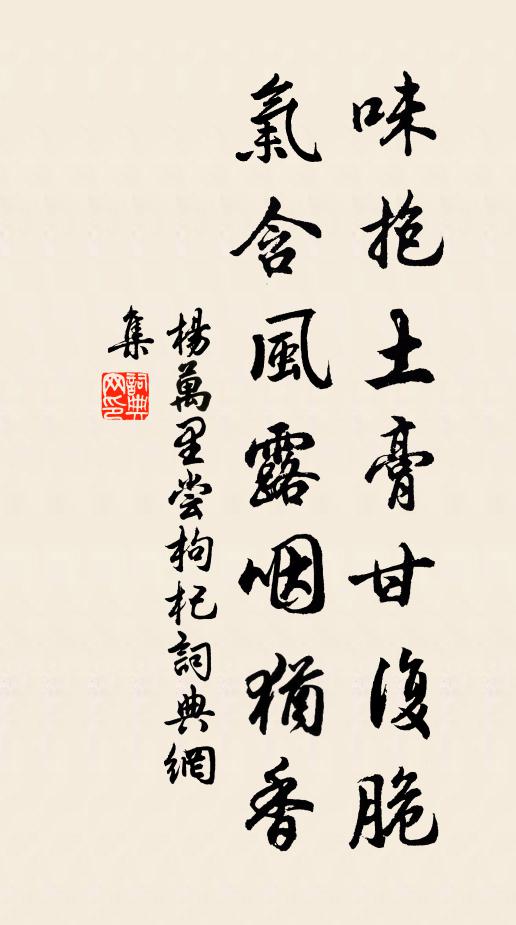 味抱土膏甘復脆
氣含風露咽猶香
楊萬里嘗枸杞詞典網
集
詞典
网印